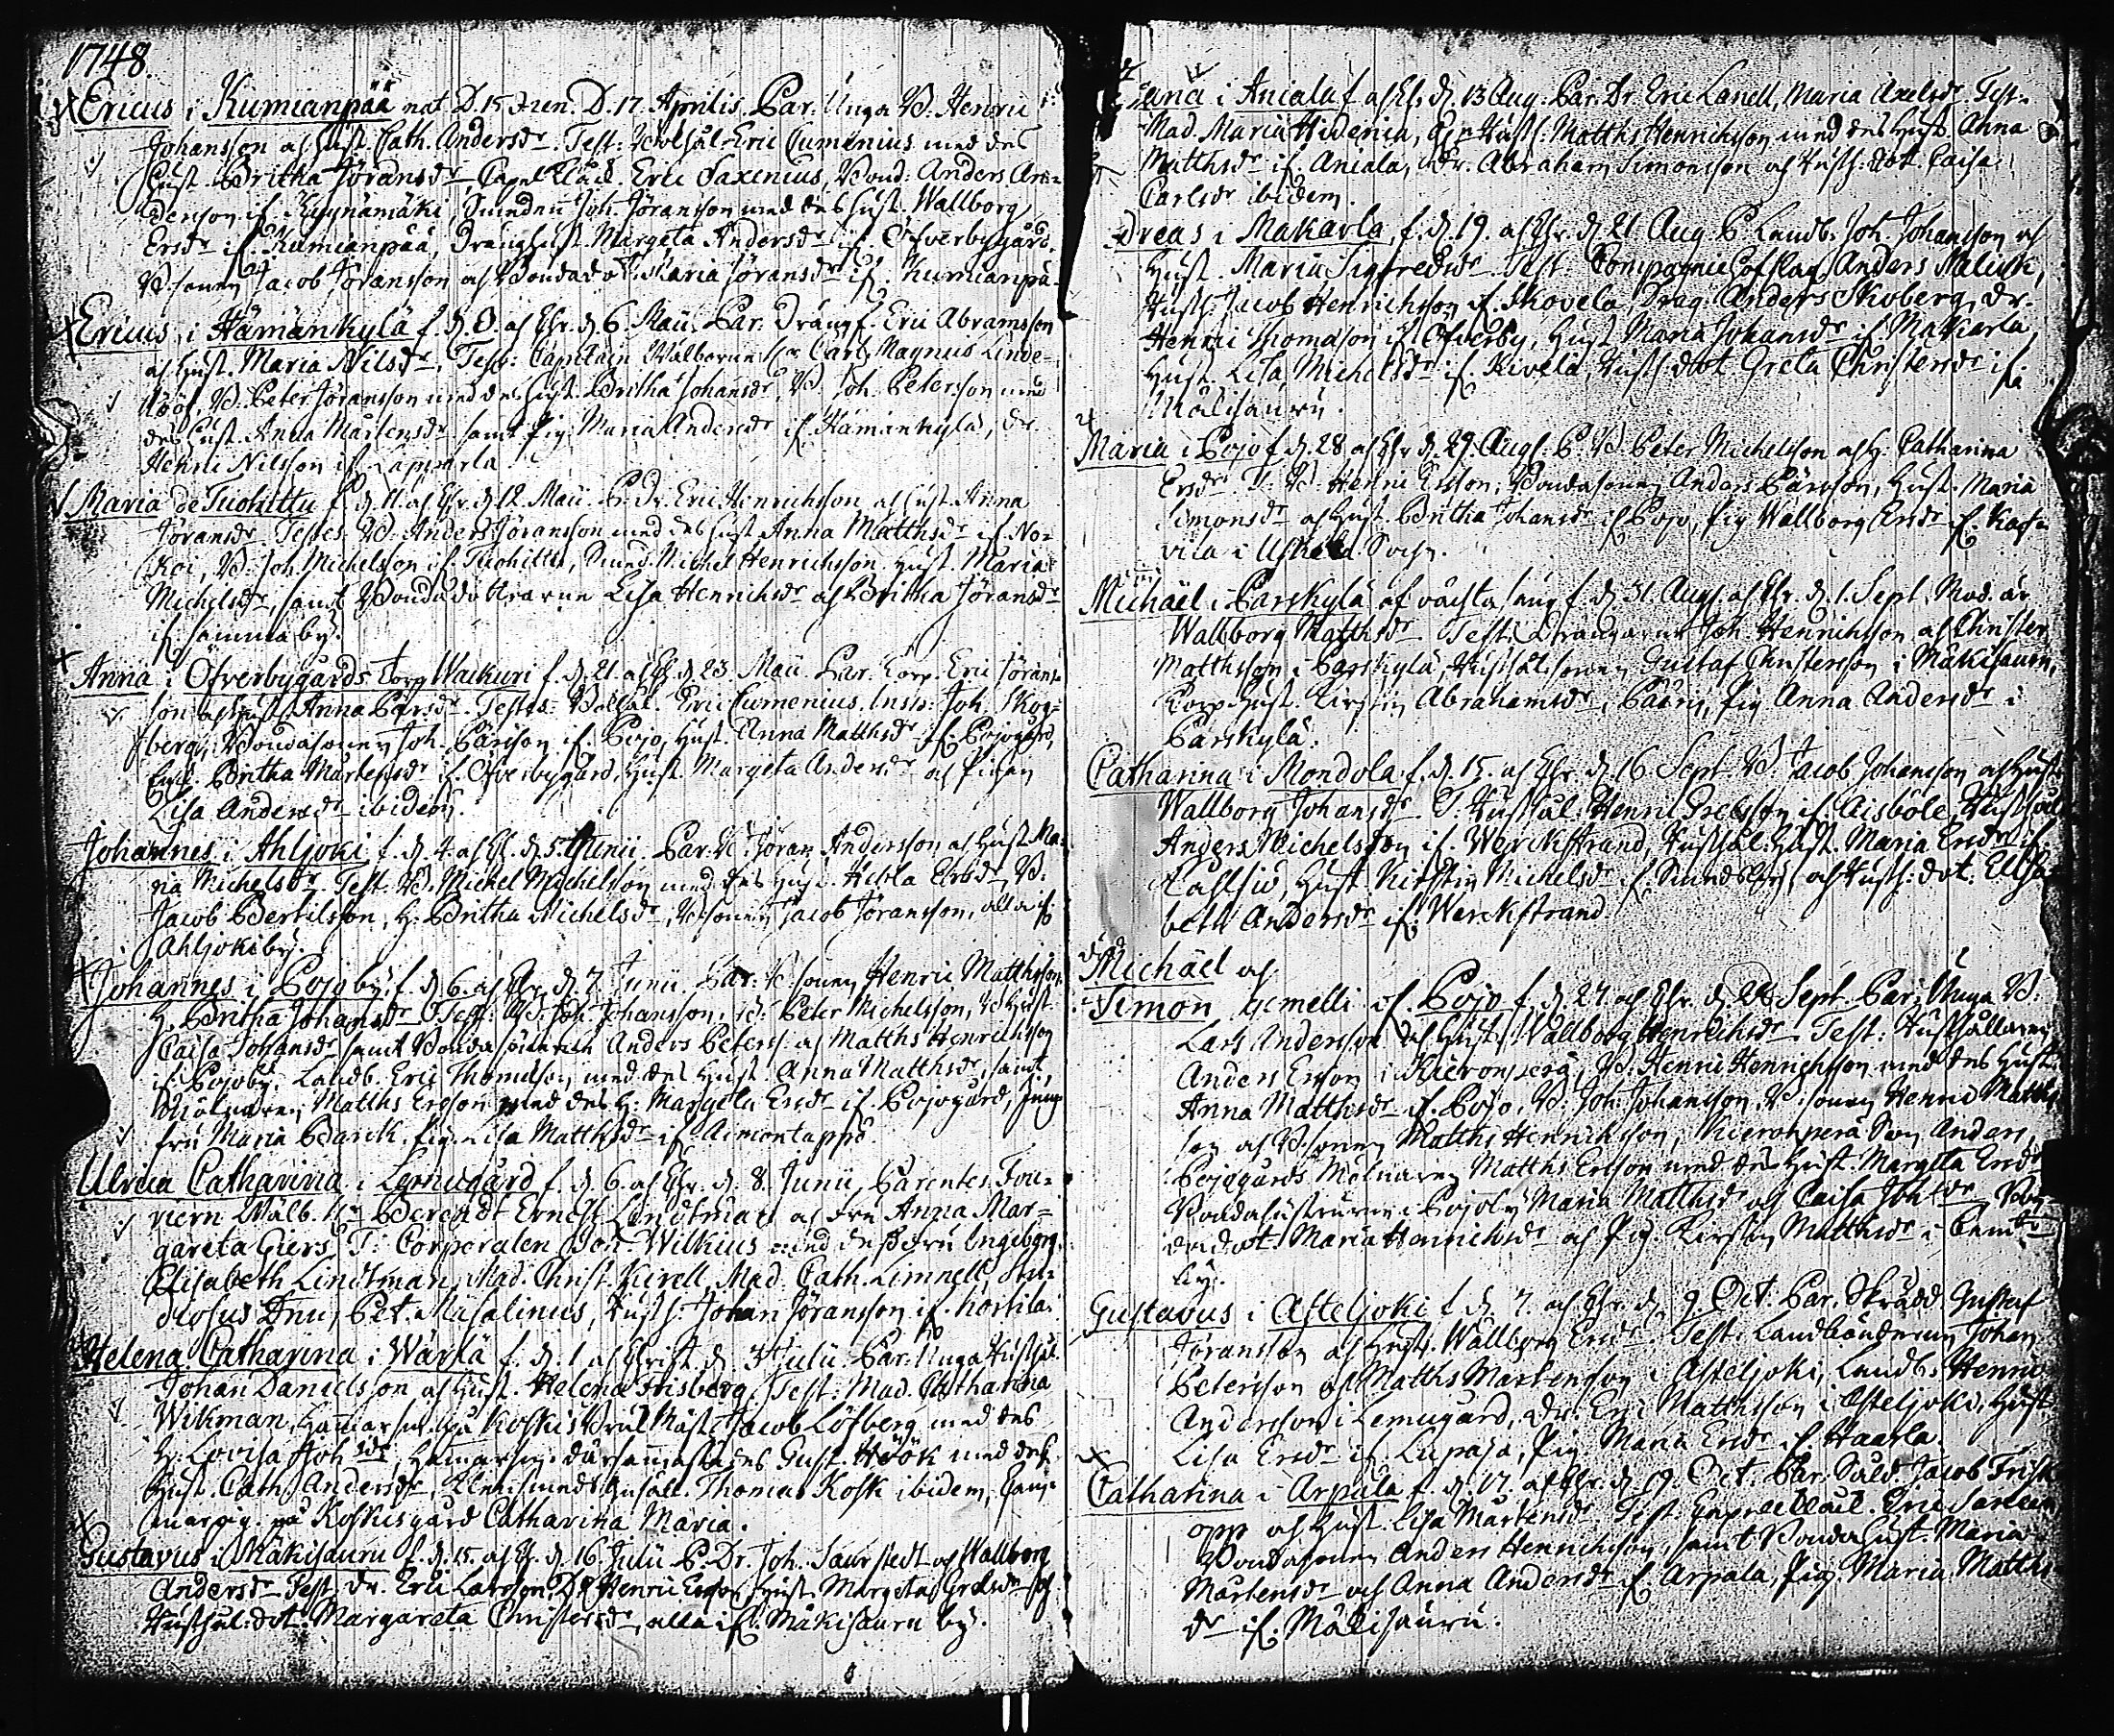 1748.
Ericus i Kumianpää nat D. 15 ren. D. 17. Aprilis. Par. Unga B. Henric
Johansson och hust. Cath. Andersdr. Test: Eric Cumenius med des
hust. Britha Jöransdr, Eric Saxenius, Bond. Anders An-
derson if. Smeden Joh. Jöransson med des hust. Wallborg
Ersdr if. Kumianpää, Dräng hust. Margeta Andersdr if. Öfverbygård.
B. sonen Jacob Jöransson och Bondadot. Maria Jöransdr if. Kumianpä.
Ericus i Hämänkylä f. d. och Chr. d. 6. Maii. Par. Eric Abramsson
och hust. Maria Nilsdr. Test: Capitain Wälborne Hr Carl Magnus Linde-
B. Peter Jöransson med des hust. Britha Johansdr, B. Joh. Petersson med
des hust. Anna Mårtensdr samt Pig. Maria Andersdr if. Hämänkylä, Dr.
Henric Nilsson if. Lapparla
Maria de Tuohittu f. d. 11. och Chr. d. 12. Maii. Dr. Eric Henrichsson och hust. Anna
Jöransdr. Testes. B. Anders Jöransson med des hust. Anna Matthsdr if. No-
koi, B. Joh. Michelsson if. Tuohittu, Smed. Michel Henrichsson. Hust. Maria
Michelsdr, samt Bondadöttrarne Lisa Henrichsdr och Britha Jöransdr
if. samma by.
Anna i Öfverbygårds Torp Waikuri f. d. 21. och Chr. d. 23. Maii. Par. Corp. Eric Jörans-
son och hust. Anna Pärsdr. Testes: Eric Cumenius. Insp. Joh. Skog-
berg, Bondasonen Joh. Pärsson if. Pojo, Hust. Anna Matthsdr if. Pojogård,
Britha Mårtensdr if. Öfverbygård, Hust. Margeta Andersdr och Pigan
Lisa Andersdr ibidem.
Johannes i Ahljoki f. d. 4. och Chr. d. 5. Junii. Par. B. Jöran Andersson och hust. Ma-
ria Michelsdr. Test. B. Michel Michelsson med des hust. Ersdr, B.
Jacob Bertilsson, H. Britha Michelsdr, B. sonen Jacob Jöransson, alla if.
Ahljokiby.
Johannes i Pojoby f. d. 6. och Chr. d. 7. Junii. Par. B. sonen Henric Matthsson,
H. Britha Johansdr. Test: B. Joh. Johansson, B. Peter Michelsson, B. Hust.
Caisa Johansdr samt Bondasönerne Anders Peterss. och Matths Henrichsson
if. Pojoby. Landb. Eric Thomasson med des hust. Anna Matthsdr, samt
Mölnaren Matths Ersson med des H. Margeta Ersdr if. Pojogård, Jung-
fru Maria Barck, Pig. Lisa Matthsdr if.
Ulrica Catharina i Lemugård f. d. 6. och Chr. d. 8. Junii, Parentes. Fou-
riern Wälb. Hr Berendt Ernest Lindtman och Fru Anna Mar-
gareta Giers. T: Corporalen Joh. Wilkius med dess fru Ingeborg
Elisabeth Lindtman, Mad. Christ. Kirell, Mad. Cath. Limnell, Stu-
diosus Dnus Pet. Misalinus, Hush. Johan Jöransson if. Norrila.
Helena Catharina i Wärlä f. d. 1 och Christ. d. 3 Julii. Par. Unga
Johan Danielsson och hust. Helena Frisberg. Test: Mad. Catharina
Wikman, Hammarsm. på Koskis Bruk Mäst. Jacob Löfberg med des
H. Lovisa Joh.dr, Hammarsm. därsammastädes Gust. Höök med des
Hust. Cath. Andersdr, Thomas Kosk ibidem,
på Koskisgård Catharina Maria.
Gustavus i Mäkisauru f. d. 15. och Chr. d. 16. Julii P. Dr. Joh. Saurstedt och Wallborg
Andersdr. Test. Dr. Eric Larsson, Dr. Henric Ersson, Hust. Margeta Grelsdr och
dot. Margareta Christersdr, alla if. Mäkisauru by.
i Aniala f. och Chr. d. 13 Aug. Par. Dr. Eric Lanell, Maria Axelsdr. Test.
Mad. Maria Hidenia, Matths Henrichsson med des hust. Anna
Matthsdr if. Aniala, Dr. Abraham Simonsson och Hush. dot. Caisa
Carlsdr ibidem.
dreas i Makarla, f. d. 19. och Chr. d. 21 Aug. P. Landb. Joh. Johansson och
hust. Maria Sigfredsdr. Test: Anders Malick,
Hush. Jacob Henrichsson if. Skovela, Drag. Anders Skoberg, Dr.
Henric Thomasson if. Öfverby, Hust. Maria Johansdr if. Makarla,
Hust. Lisa Michelsdr if. Kivelä, Hush. dot. Greta Christersdr if.
Mäkisauru.
Maria i Pojo f. d. 28. och Chr. d. 29. Aug. P. B. Peter Michelsson och H. Catharina
Ersdr. T: B. Henric Ersson, Bondasonen Anders Pärsson, Hust. Maria
Simonsdr och Hust. Britha Johansdr if. Pojo, Pig. Wallborg Ersdr if.
i Sockn.
Michael i Parskylä af f. d. 31. Aug. och Chr. d. 1. Sept. Mod. är
Wallborg Matthsdr. Test: Drängarne Joh. Henrichsson och Christer
Matthsson i Parskylä, sonen Gustaf Christersson i Mäkisauru,
Corp. hust. Kirstin Abrahamsdr i Pääri, Pig. Anna Andersdr i
Parskylä.
Catharina i Mondola f. d. 15. och Chr. d. 16. Sept. B. Jacob Johansson och hust.
Wallborg Johansdr. T: Henric Grelsson if. Aisböle,
Anders Michelsson if. Werckstrand, hust. Maria Ersdr if.
Hust. Kirstin Michelsdr if. och Hush. dot. Elisa-
beth Andersdr if. Werckstrand
Michael och
Simon gemelli if. Pojo f. d. 27 och Chr. d. 28 Sept. Par. Unga B.
Lars Andersson och hust. Wallborg Henrichsdr. Test: Hushållaren
Anders Ersson i Kieronperä, B. Henric Henrichsson med des hust.
Anna Matthsdr if. Pojo. B. Joh. Johansson. B. sonen Henric Matths-
son och B. sonen Matths Henrichsson, Kieronperä Son Anders,
Pojogårds Mölnaren Matths Ersson med des hust. Margeta Ersdr
Bondahustrurne i Pojoby Maria Matthsdr och Caisa Joh.dr, Bon-
dedot. Maria Henrichsdr och Pig. Kirstin Matthsdr i
by.
Gustavus i Asteljoki f. d. 7. och Chr. d. 9 Oct. Par. Skrädd. Gustaf
Jöransson och hust. Wallborg Ersdr. Test: Landbönderne Johan
Petersson och Matths Mårtensson i Asteljoki, Landb. Henric
Andersson i Lemugård, Dr. Eric Matthsson i Asteljoki, Hust.
Lisa Ersdr if. Lupaja, Pig. Maria Ersdr if. Haarla.
Catharina i Arpala f. d. 17. och Chr. d. 19. Oct. Par. Sold. Jacob Frisk
opp och hust. Lisa Mårtensdr. Test. Eric
Bondasonen Anders Henrichsson, samt Bondahust. Maria
Mårtensdr och Anna Andersdr if. Arpala, Pig. Maria Matths
dr if. Mäkisauru.